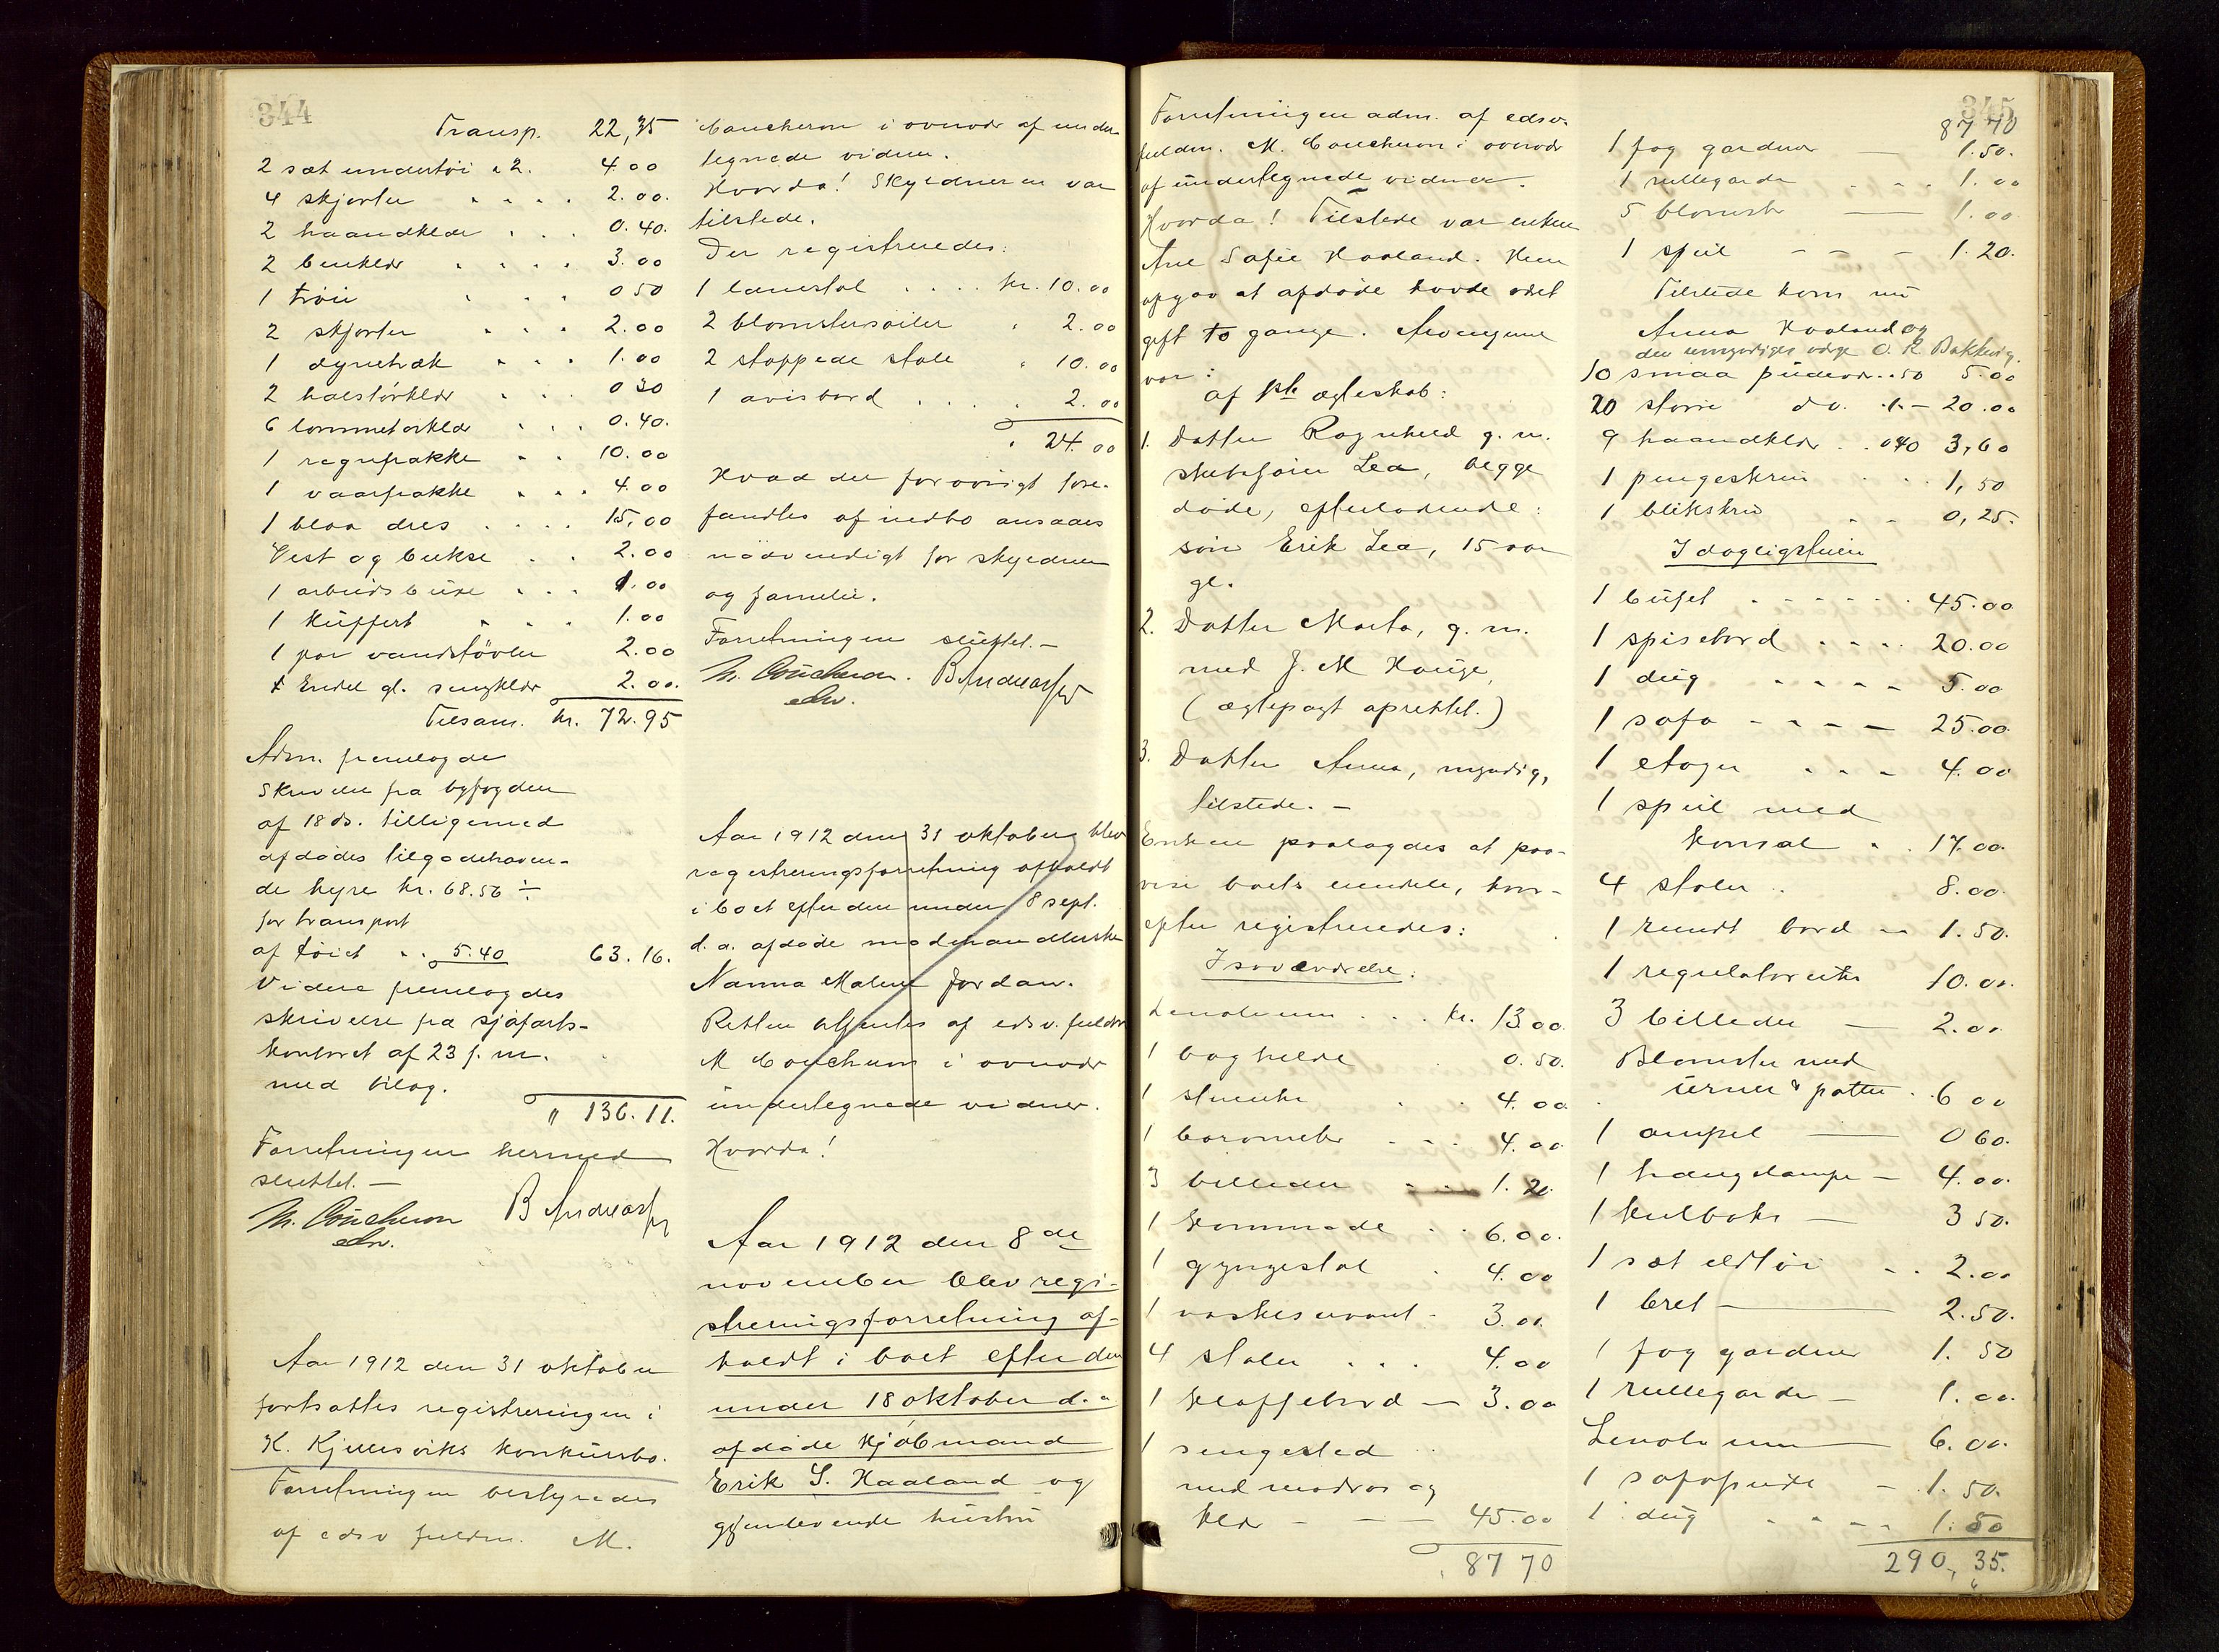 344
Transp. 22,35
2 sæt undertöi a 2. 4.00
4 skjorter 2.00.
2 haandklæder 0.40.
2 benklær 3.00
1 tröie 0 50
2 skjorter 2.00
1 dynetræk 1.00
2 halstörklær 0 30
6 lommetörklær 0.40.
1 regnfrakke 10.00
1 vaarfrakke 4.00
1 blaa dres 15,00
Vest og bukse 2.00
1 arbeidsbuxe 1.00
1 kuffert 1.00
1 par vandstövler 2.00
Endel gl. sengklær 2.00.
Tilsam. kr. 72.95
Adm. fremlagde
skrivelse fra byfogden
af 18 ds. tilligemed
afdödes tilgodehaven-
de hyre kr. 68.56 ÷
for transport
af töiet 5.40 63.16.
Videre fremlagdes
skrivelse fra sjöfarts-
kontoret af 23 f. m.
med bilag.
" 136.11.
Forretningen hermed
sluttet. —
M. Coucheron B Andreassen
edsv.
Aar 1912 den 31 oktober
fortsattes registreringen i
K. Kjellesviks konkursbo.
Forretningen bestyredes
af edsv fuldm. M.
Coucheron i overvær af under
tegnede vidner.
Hvorda! Skyldneren var
tilstede.
Der registreredes:
1 lænestol kr. 10.00
2 blomstersöiler 2.00
2 stoppede stole 10.00
1 avisbord 2.00
24.00
Hvad der forövrigt fore-
fandtes af indbo ansaaes
nödvendigt for skyldneren
og familie.
Forretningen sluttet. —
M. Coucheron. B Andreassen
edsv.
Aar 1912 den 31 oktober blev
registreringsforretning afholdt
i boet efter den under 8 sept.
d. a. afdöde madmanhandlerske
Nanna Malene Jordan.
Retten betjentes af edsv. fuldm
M Coucheron i overvær
undertegnede vidner.
Hvorda!
Aar 1912 den 8de
november blev regi-
streringsforretning af-
holdt i boet efter den
under 18 oktober d. a
afdöde kjöbmand
Erik S. Haaland og
gjenlevende hustru
345
Forretningen adm. af edsv.
fuldm. M. Coucheron i overvær
af undertegnede vidner.
Hvorda! Tilstede var enken
Ane Sofie Haaland. Hun
opgav at afdöde havde været
gift to gange. Arvingerne
var:
af 1ste ægteskab:
1. Datter Ragnhild g. m.
skibsförer Lea, begge
döde, efterladende:
sön Erik Lea, 15 aar
gl.
2. Datter Marta, g. m.
med J. M Hauge,
(ægtepagt oprettet.)
3. Datter Anna, myndig,
tilstede. —
Enken paalagdes at paa-
vise boets eiendele, hvor-
efter registreredes:
I soveværelse:
Linoleum kr. 13 00.
1 boghylde 0.50.
1 stueuhr 4.00.
1 barometer 4.00
3 billeder 1.20.
1 kommode 6.00.
1 gyngestol 4.00
1 vaskeservant 3.00.
4 stoler 4.00
1 klaffebord — 3.00
1 sengested
med madras og
klær — 45.00
87 70
87 70
1 fag gardiner — 1.50.
1 rullegardin 1.00
5 blomster — 1.00
1 speil 1.20.
Tilstede kom nu
Anna Haaland og
den umyndiges værge O. K. Bakkevig.
10 smaa puder .50 5.00
20 större do. .1.— 20.00
9 haandklær 0 40 3,60
1 pengeskrin 1,50
1 blikskrin 0,25.
I dagligstuen
1 büfet 45.00
1 spisebord 20.00
1 dug 5.00
1 sofa 25.00.
1 etager 4.00
1 speil med
konsol 17.00.
4 stoler 8.00.
1 rundt bord — 1.50.
1 regulatoruhr 10.00.
3 billeder — 2.00
Blomster med
urner & potter 6 00
1 ampel — 0 60.
1 hængelampe — 4.00.
1 kulboks — 3 50.
1 sæt ildtöi 2.00
1 bret — 2.50.
1 fag gardiner 1.50
1 rullegardin — 1.00.
Linoleum — 6.00.
1 sofapude — 1.50.
1 dug 1.50
290,35.